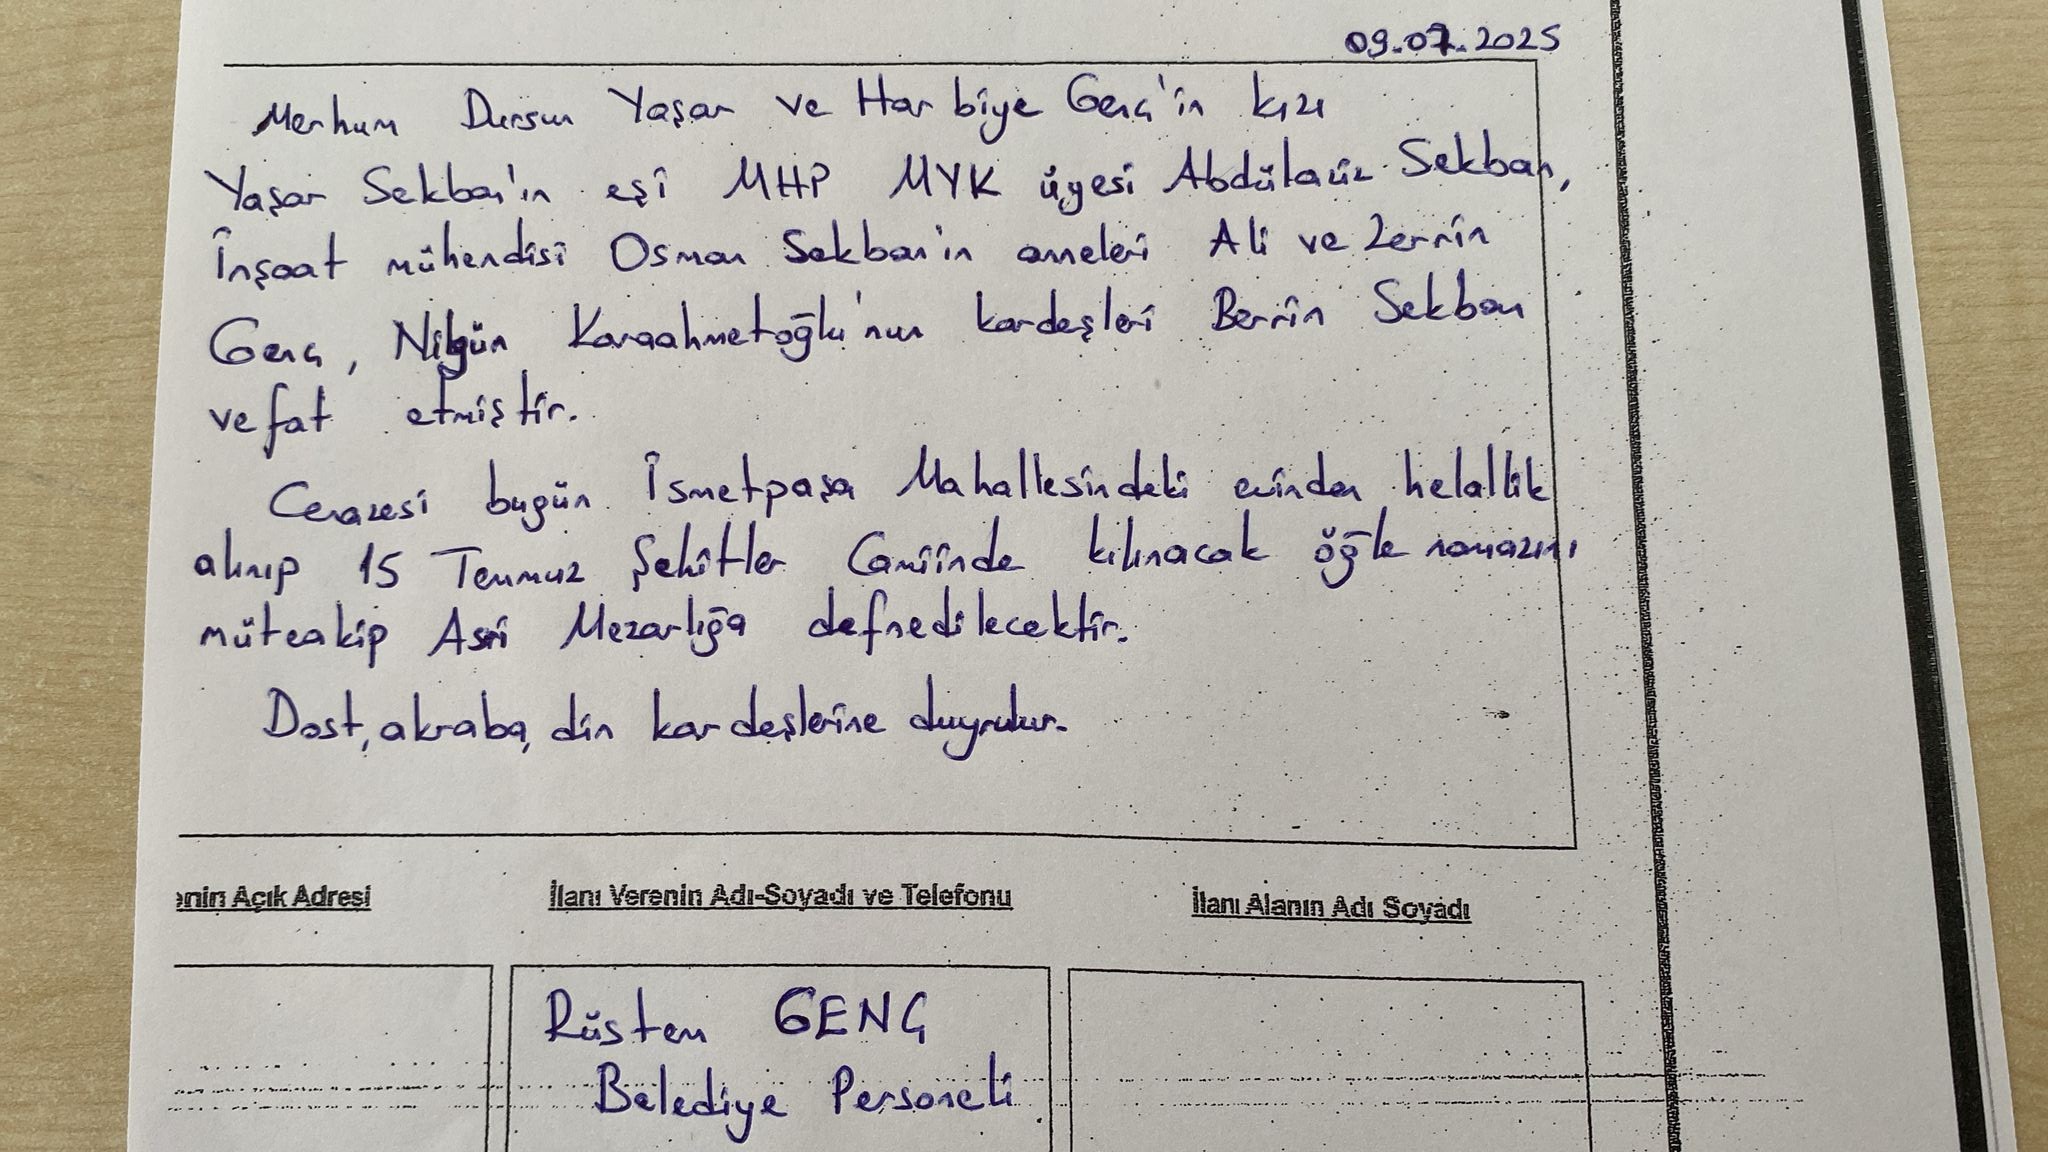 09.07.2025
Merhum Dursun Yaşar ve Harbiye Genç'in kızı
Yaşar Sekban'ın eşi MHP MYK üyesi Abdülaziz Sekban,
İnşaat mühendisi Osman Sekban'ın anneleri Ali ve Zerrin
Genç, Nilgün Karaahmetoğlu'nun kardeşleri Berrin Sekban
vefat etmiştir.
Cenazesi bugün İsmetpaşa Mahallesindeki evinden helallik
alınıp 15 Temmuz Şehitler Camiinde kılınacak öğle namazını
müteakip Asri Mezarlığa defnedilecektir.
Dost, akraba, din kardeşlerine duyrulur.
enin Açık Adresi İlanı Verenin Adı-Soyadı ve Telefonu İlanı Alanın Adı Soyadı
Rüstem GENÇ
Belediye Personeli